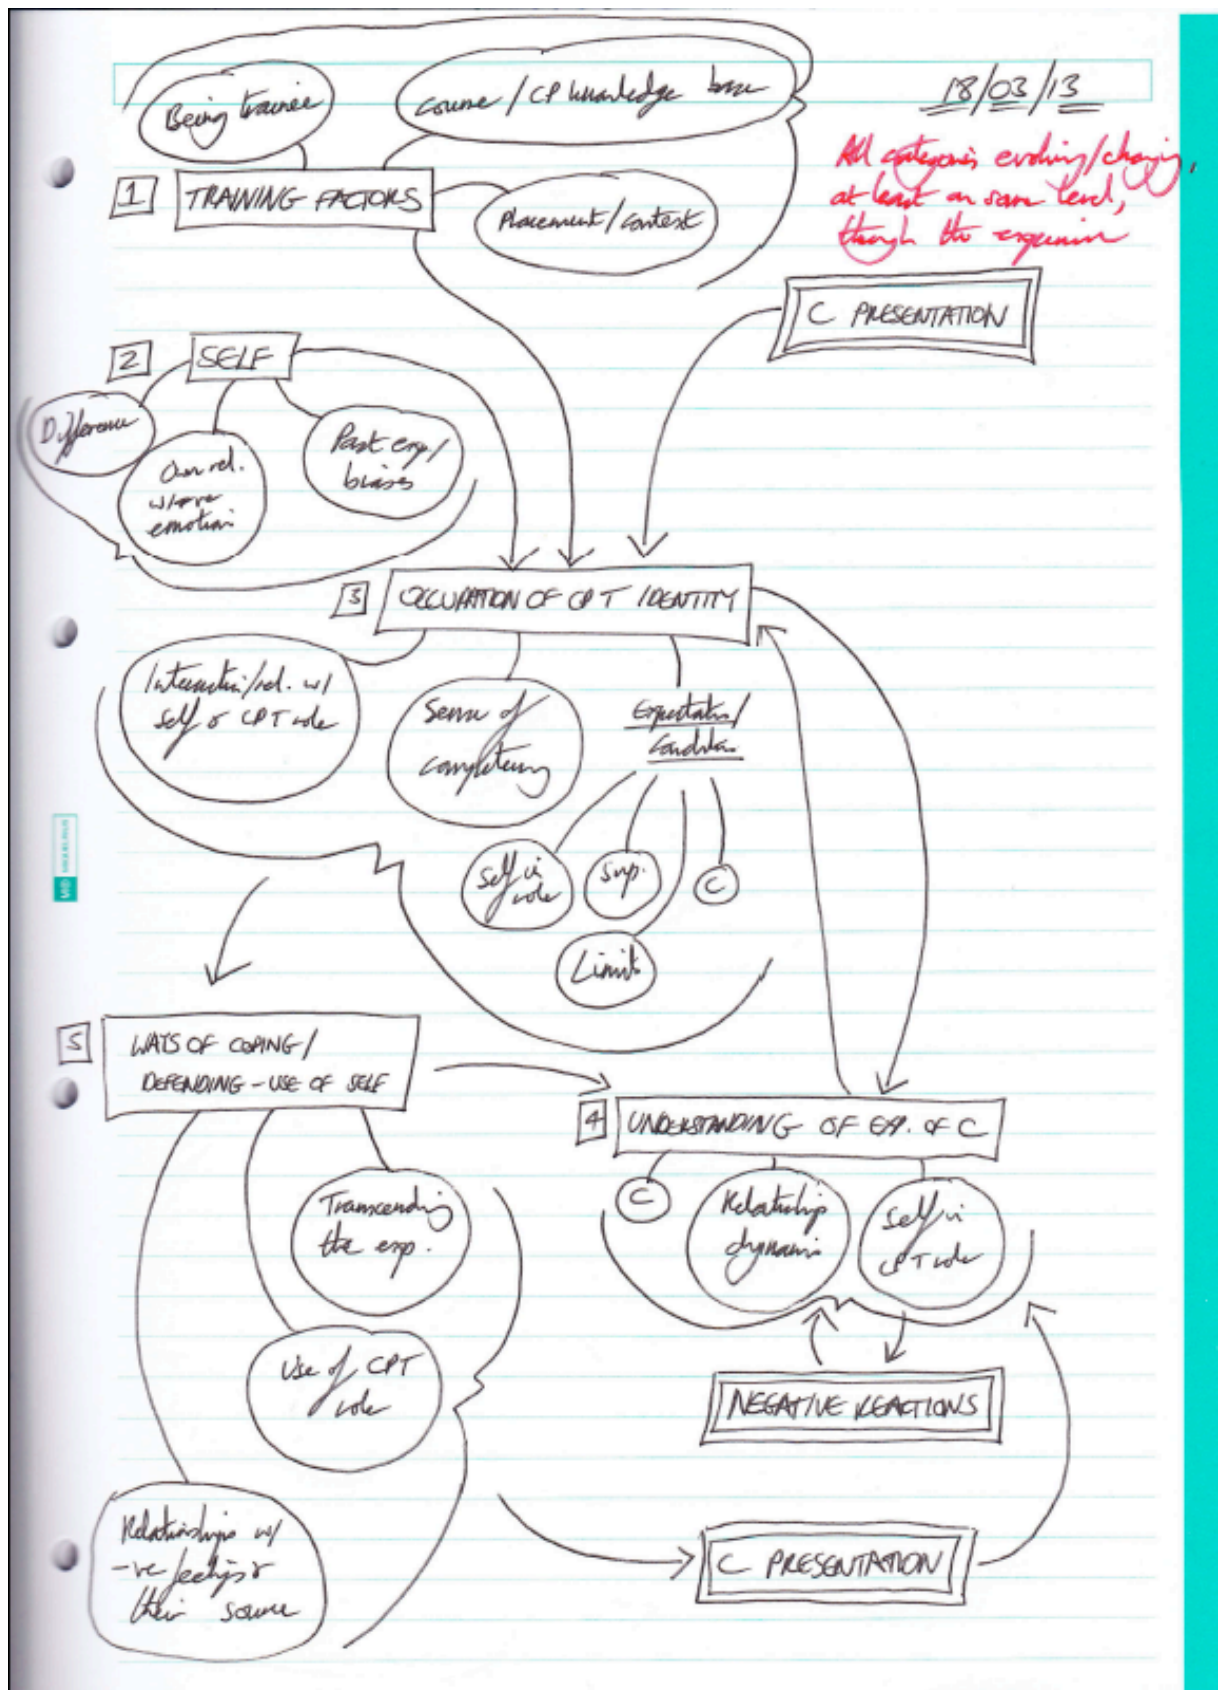 Being trainee
Course / CP knowledge base
18/03/13
All categories evolving/changing,
at least on some level,
through the experience
1
TRAINING FACTORS
Placement/context
C PRESENTATION
2
SELF
Difference
Own rel.
w/-ve
emotions
Past exp./
biases
3
OCCUPATION OF CPT IDENTITY
Interaction/rel. w/
self & CPT role
Sense of
competency
Expectations/
Conditions
Self in
role
Sup.
C
Limits
5
WAYS OF COPING/
DEFENDING - USE OF SELF
4
UNDERSTANDING OF EXP. OF C
C
Relationship
dynamic
Self in
CPT role
Transcending
the exp.
Use of CPT
role
NEGATIVE REACTIONS
Relationships w/
-ve feelings &
their source
C PRESENTATION